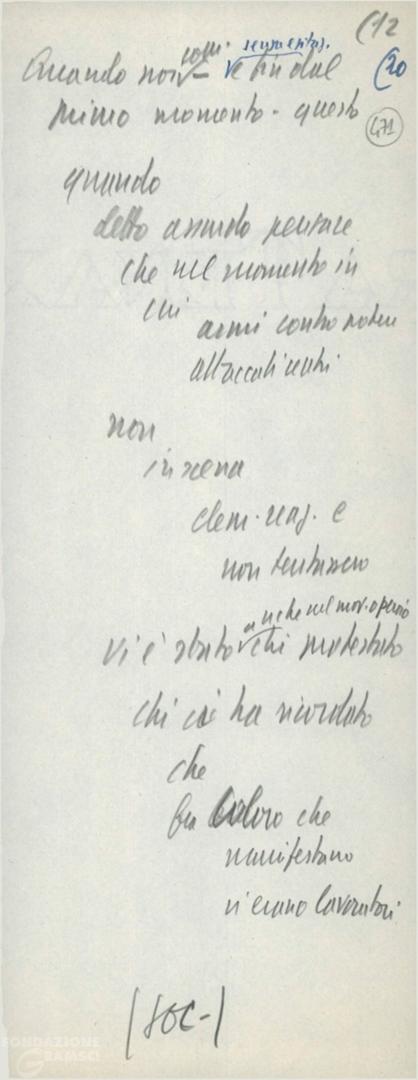 (12
(20
471
com. sennesitas.
Quando noi e fin dal
primo momento - questo
quando
detto assurdo pensare
che nel momento in
cui
armi contro potere
attaccati nostri
non
in scena
elem. reaz. e
non tentassero
anche nel mov. operaio
vi è stato chi protestato
chi ci ha ricordato
che
fra coloro che
manifestano
vi erano lavoratori
(SOC-)
FONDAZIONE
GRAMSCI